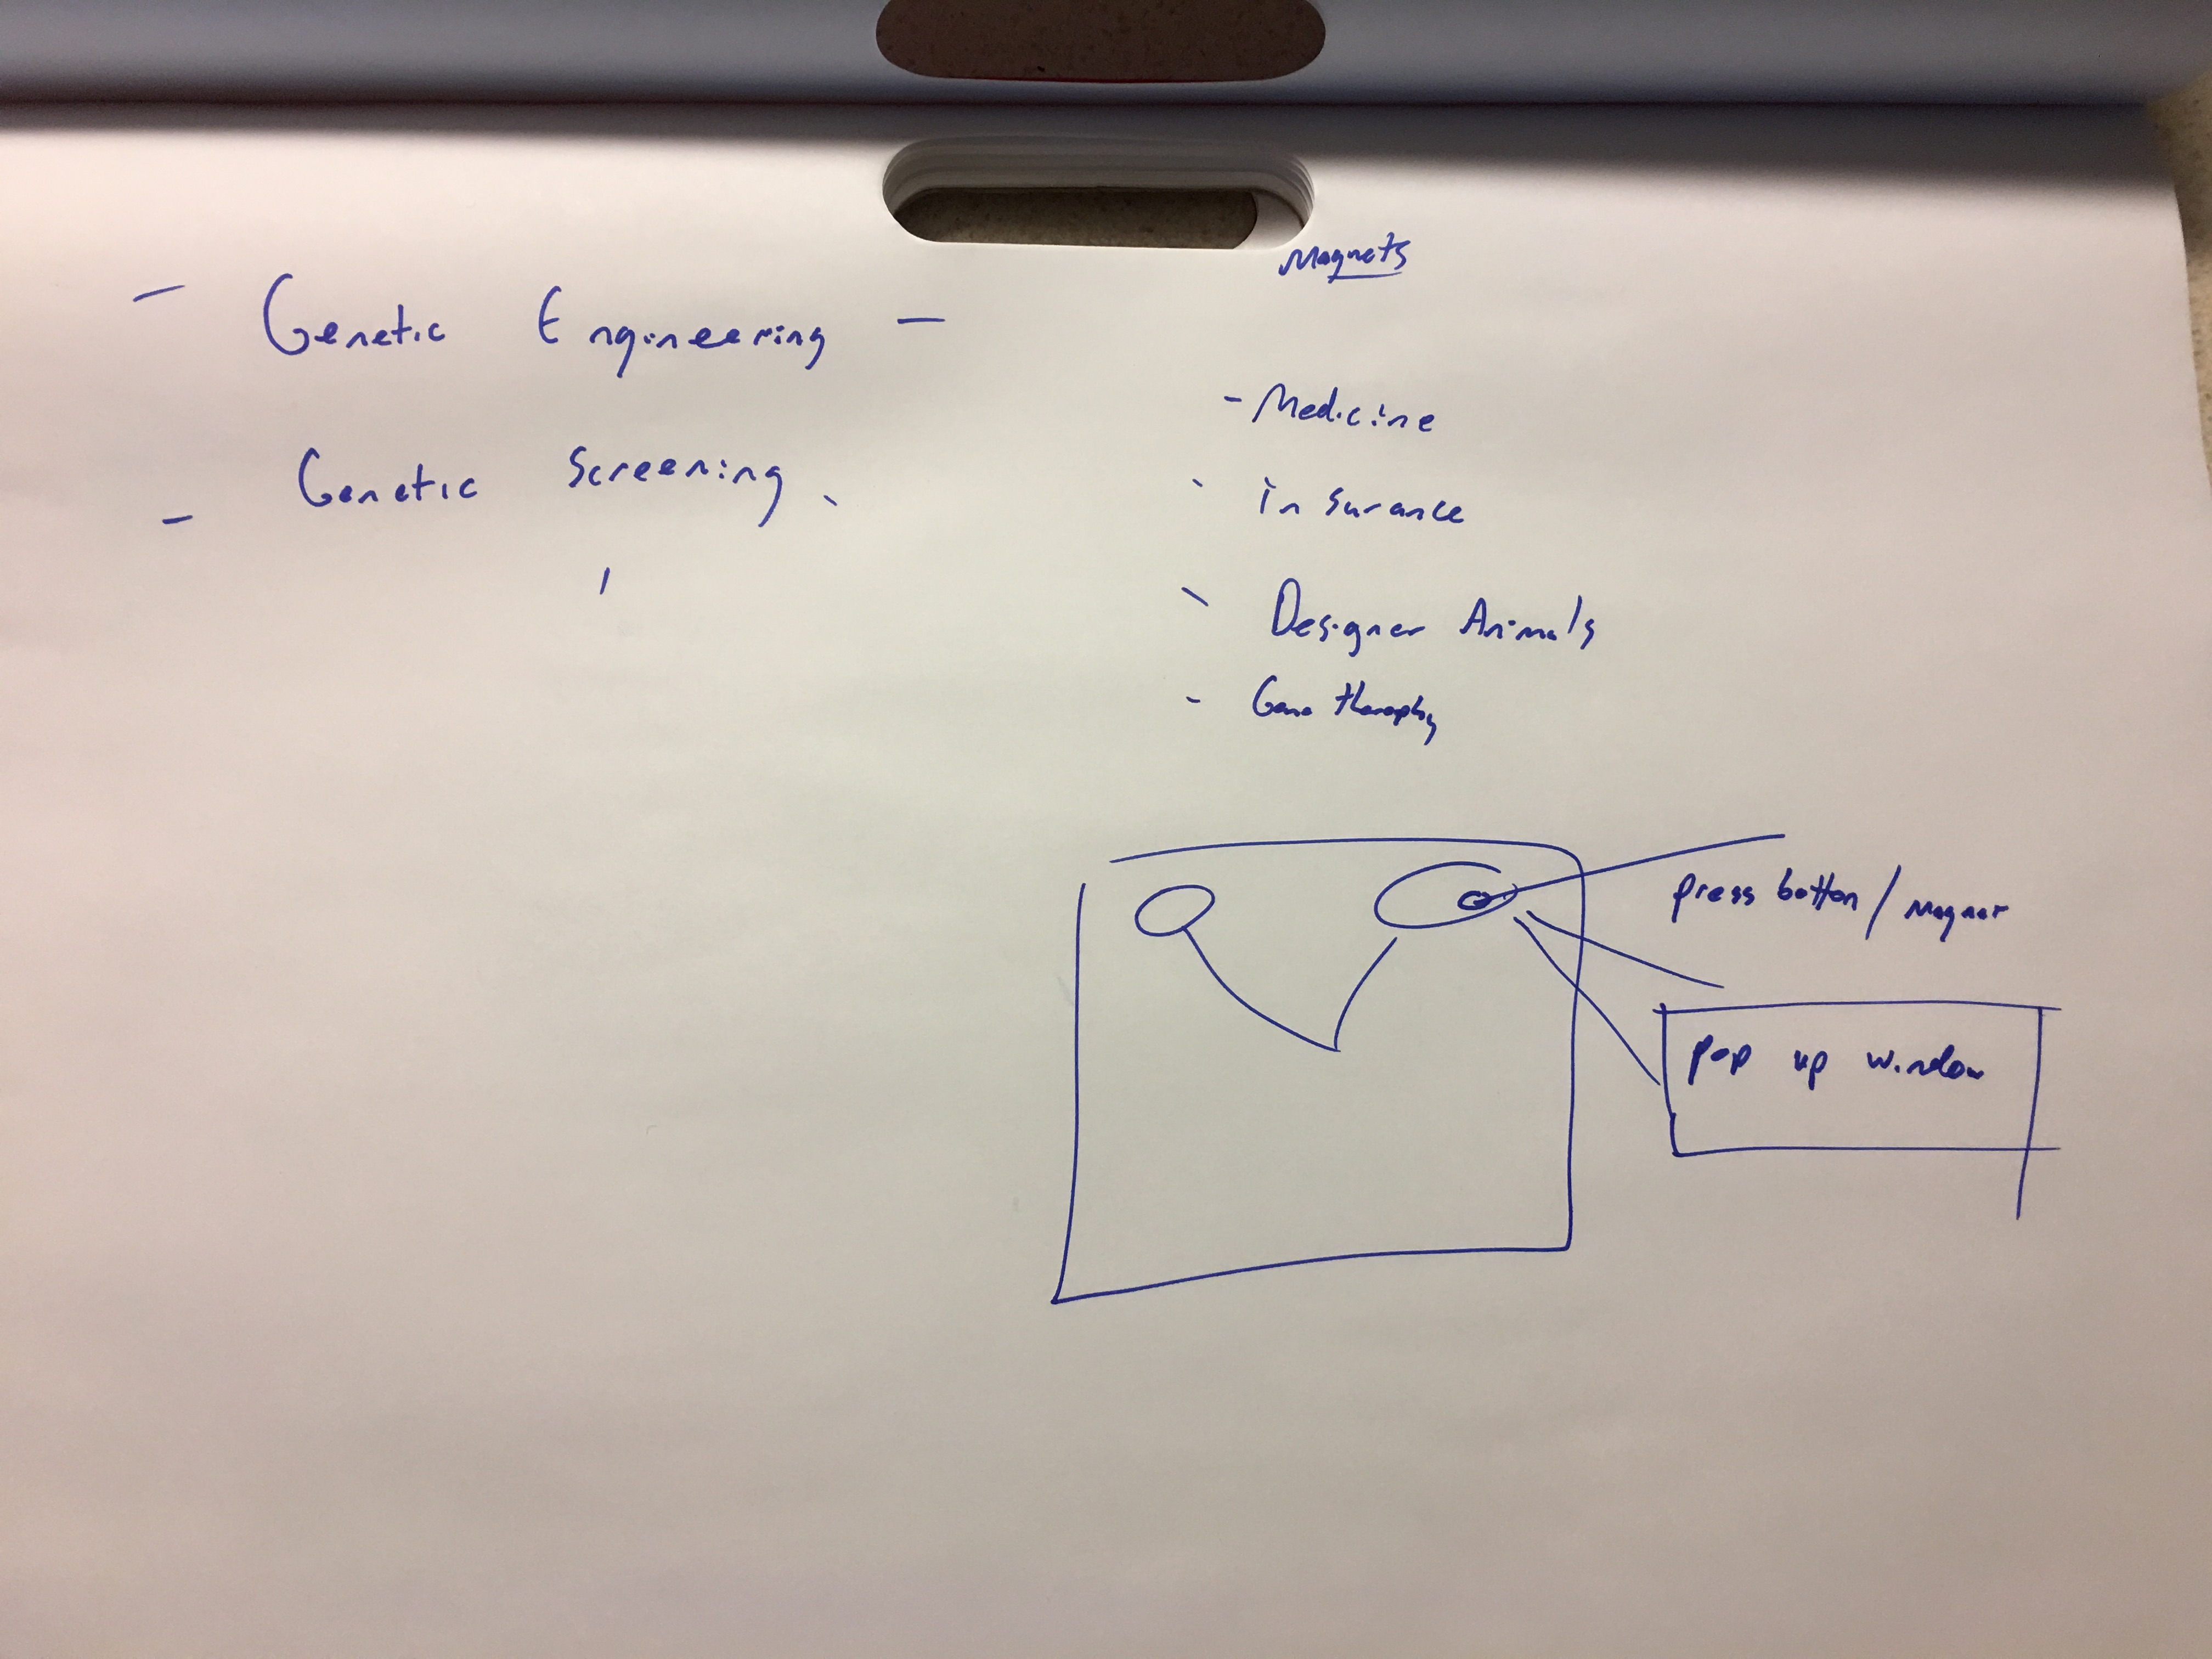 Magnets
- Genetic Engineering -
- Genetic Screening
- Medicine
- insurance
- Designer Animals
- Gene theraphy
press button / Magnet
pop up window